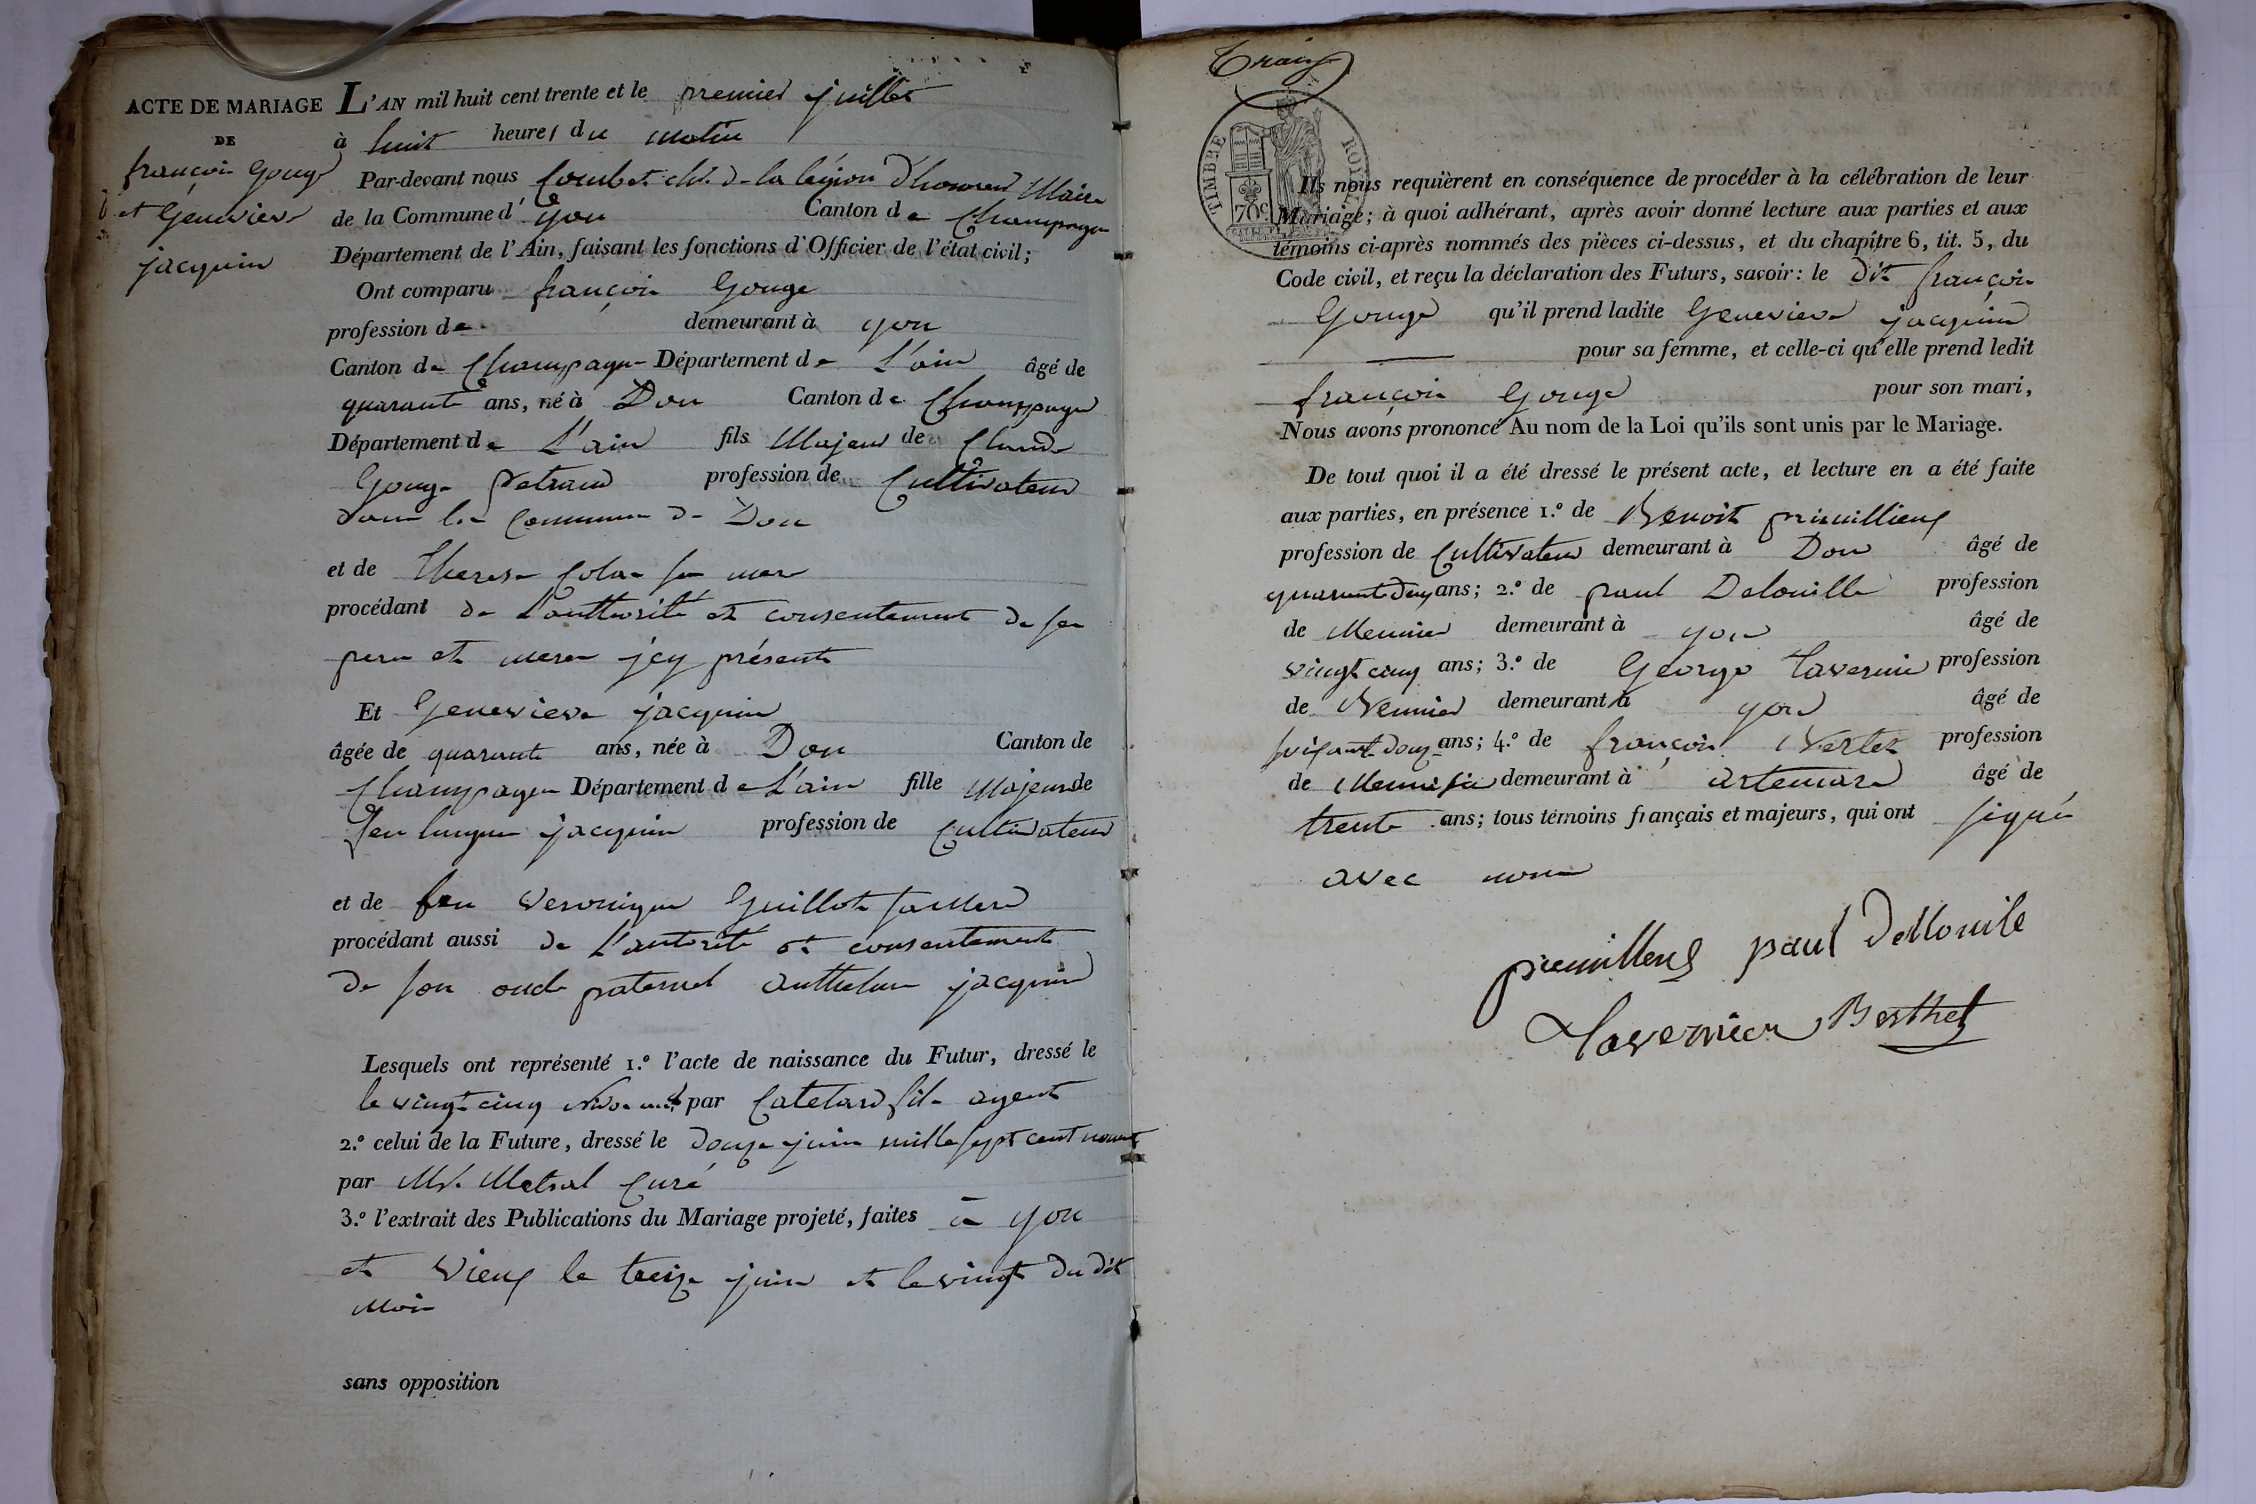 ACTE DE MARIAGE
DE
françois Gouge
et Genevieve
jacquin
L'AN mil huit cent trente et le premier juillet
à huit heures du matin
Par-devant nous Combet chr. de la légion d'honneur Maire
de la Commune d' yon Canton de Champagne
Département de l'Ain, faisant les fonctions d'Officier de l'état civil;
Ont comparu françois Gouge
profession de demeurant à yon
Canton de Champagne Département de L'ain âgé de
quarante ans, né à Don Canton de Champagne
Département de L'ain fils Majeur de Claude
Gouge profession de Cultivateur
dans la Commune de Don
et de Therese Colas sa mere
procédant de L'authorité et consentement de ses
pere et mere jcy présents
Et Genevieve jacquin
âgée de quarante ans, née à Don Canton de
Champagne Département de L'ain fille Majeure de
feu jacquin profession de Cultivateur
et de feu Veronique Guillot sa Mere
procédant aussi de L'autorité et consentement
de son oncle paternel anthelme jacquin
Lesquels ont représenté 1.º l'acte de naissance du Futur, dressé le
le vingt cinq par Catelard fils agent
2.º celui de la Future, dressé le douze juin mille sept cent
par Mr. Metral Curé
3.º l'extrait des Publications du Mariage projeté, faites à yon
et Vieux le treize juin et le vingt du dit
Mois
sans opposition
TIMBRE ROYAL
70c
Ils nous requièrent en conséquence de procéder à la célébration de leur
Mariage; à quoi adhérant, après avoir donné lecture aux parties et aux
témoins ci-après nommés des pièces ci-dessus, et du chapître 6, tit. 5, du
Code civil, et reçu la déclaration des Futurs, savoir: le dit françois
Gouge qu'il prend ladite Genevieve jacquin
pour sa femme, et celle-ci qu'elle prend ledit
françois Gouge pour son mari,
Nous avons prononcé Au nom de la Loi qu'ils sont unis par le Mariage.
De tout quoi il a été dressé le présent acte, et lecture en a été faite
aux parties, en présence 1.º de Benoit primillieux
profession de Cultivateur demeurant à Don âgé de
quarante deux ans; 2.º de paul Delouille profession
de Meunier demeurant à yon âgé de
vingt cinq ans; 3.º de George tavernier profession
de Meunier demeurant à yon âgé de
soixante douze ans; 4.º de françois Bertet profession
de demeurant à artemare âgé de
trente ans; tous témoins français et majeurs, qui ont signé
avec nous
premilleux paul Dellouile
Tavernier Berthet